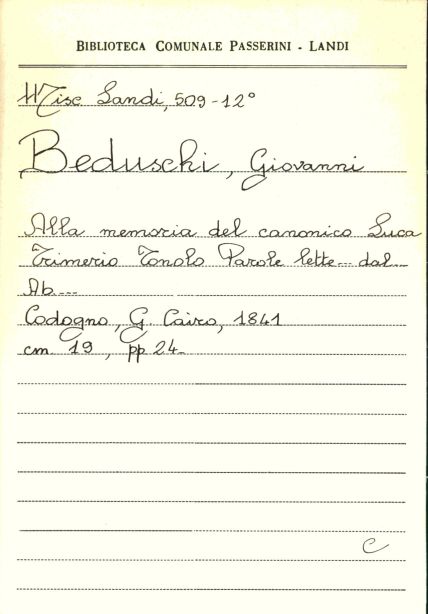 BIBLIOTECA COMUNALE PASSERINI - LANDI
Misc Landi, 509-12°
Beduschi, Giovanni
Alla memoria del canonico Luca
Trimerio Tonolo Parole lette... dal...
Ab....
Codogno, G. Cairo, 1841
cm. 19, pp. 24.
C